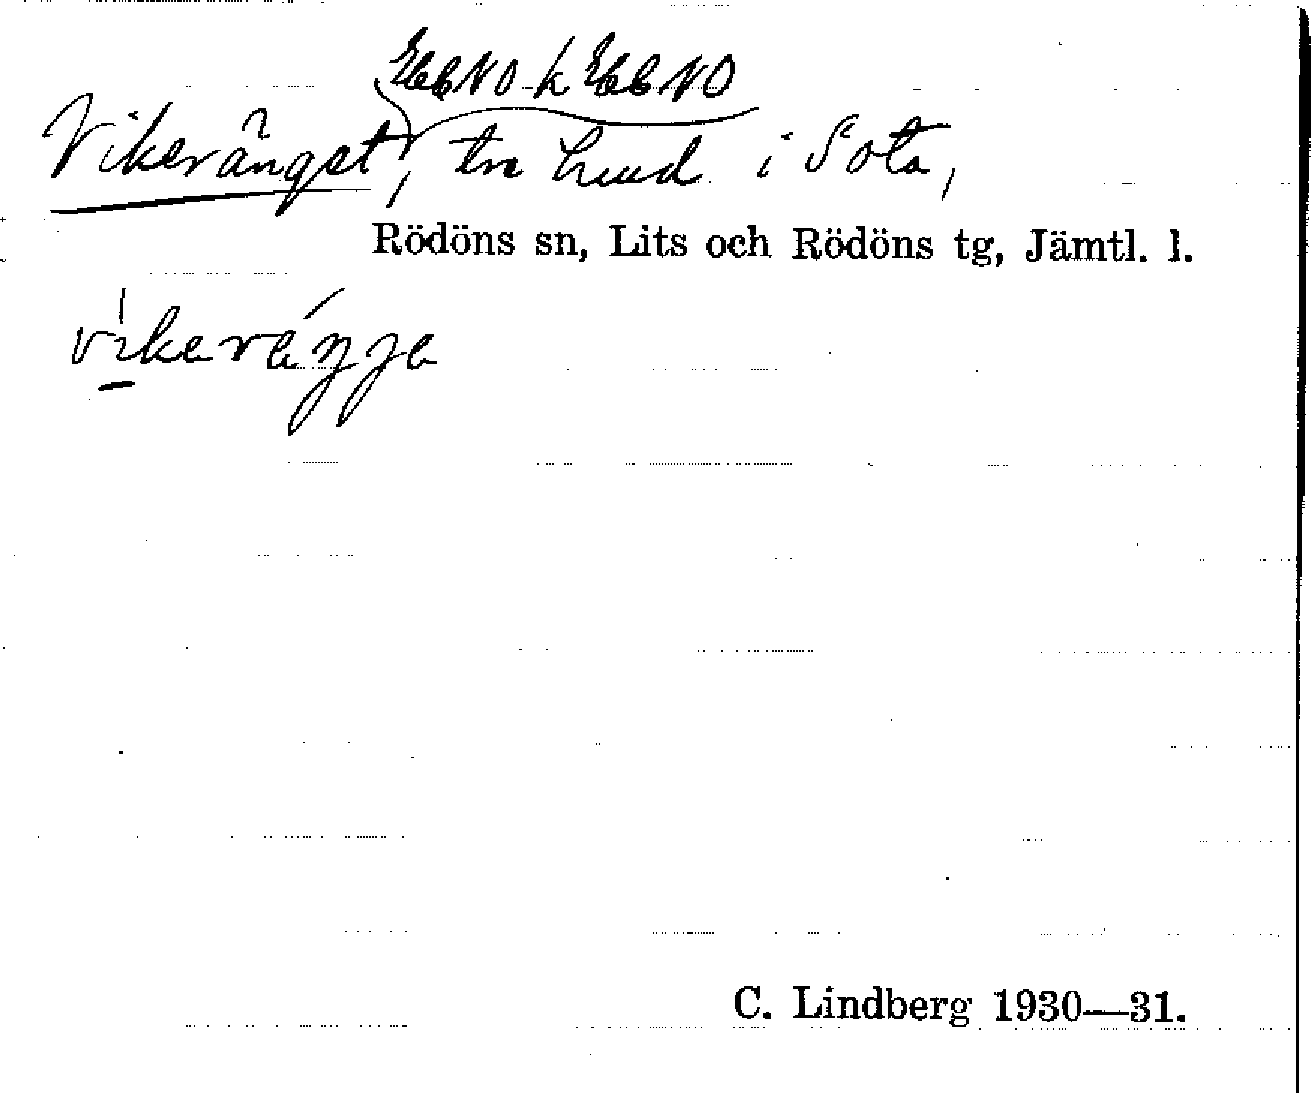 Vikeränget, tre hud i Sota,
Rödöns sn, Lits och Rödöns tg, Jämtl. l.
vikeräŋŋe
C. Lindberg 1930—31.